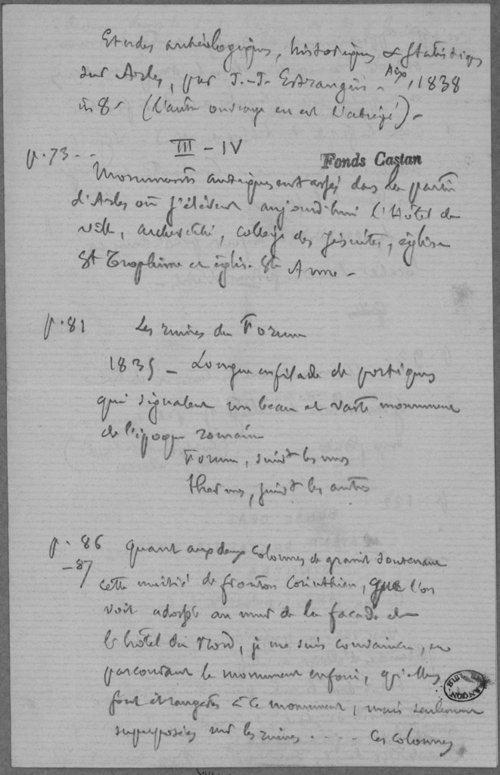 Etudes archéologiques, historiques & statistiques
sur Arles, par J.-J. Estrangin - Aix, 1838
in 8° (L'autre ouvrage en est l'abrégé).-
p. 73 -- III - IV
Fonds Castan
Monuments antiques dans la partie
d'Arles où s'élèvent aujourd'hui l'Hôtel de
ville, archevêché, collège des Jésuites, église
St Trophime et église Ste Anne -
p. 81 Les ruines du Forum
1835 - Longue enfilade de portiques
qui signalent un beau et vaste monument
de l'époque romaine
Forum, suivt les uns
thermes, suivt les autres
p. 86 Quant aux deux colonnes de granit soutenant
-87 cette moitié de fronton Corinthien, que l'on
voit adossée au mur de la façade de
l'hôtel du Nord, je me suis convaincu, en
parcourant le monument enfoui, qu'elles
sont étrangères à ce monument, mais seulement
superposées sur les ruines . . . . Ces colonnes